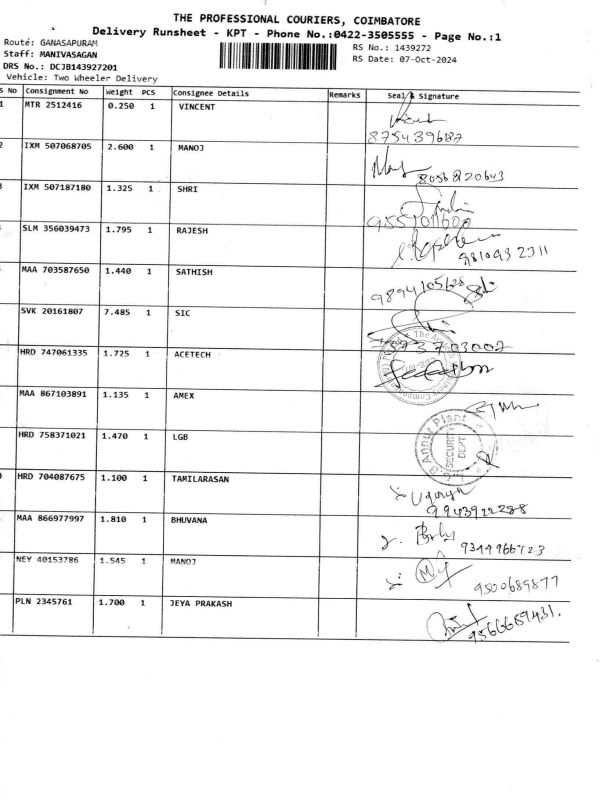 THE PROFESSIONAL COURIERS, COIMBATORE
Delivery Runsheet - KPT - Phone No.:0422-3505555 - Page No.:1
Route: GANASAPURAM
RS No.: 1439272
Staff: MANIVASAGAN
RS Date: 07-Oct-2024
DRS No.: DCJB143927201
Vehicle: Two Wheeler Delivery
S No Consignment No Weight PCS Consignee Details Remarks Seal & Signature
1 MTR 2512416 0.250 1 VINCENT
8754396187
2 IXM 507068705 2.600 1 MANOJ
8056820643
3 IXM 507187180 1.325 1 SHRI
SLM 356039473 1.795 1 RAJESH
MAA 703587650 1.440 1 SATHISH
9894105628
SVK 20161807 7.485 1 SIC
HRD 747061335 1.725 1 ACETECH
MAA 867103891 1.135 1 AMEX
HRD 758371021 1.470 1 LGB
Annur Plant
SECURITY
DEPT
HRD 704087675 1.100 1 TAMILARASAN
9943922288
MAA 866977997 1.810 1 BHUVANA
NEY 40153786 1.545 1 MANOJ
9500689877
PLN 2345761 1.700 1 JEYA PRAKASH
9566659431.